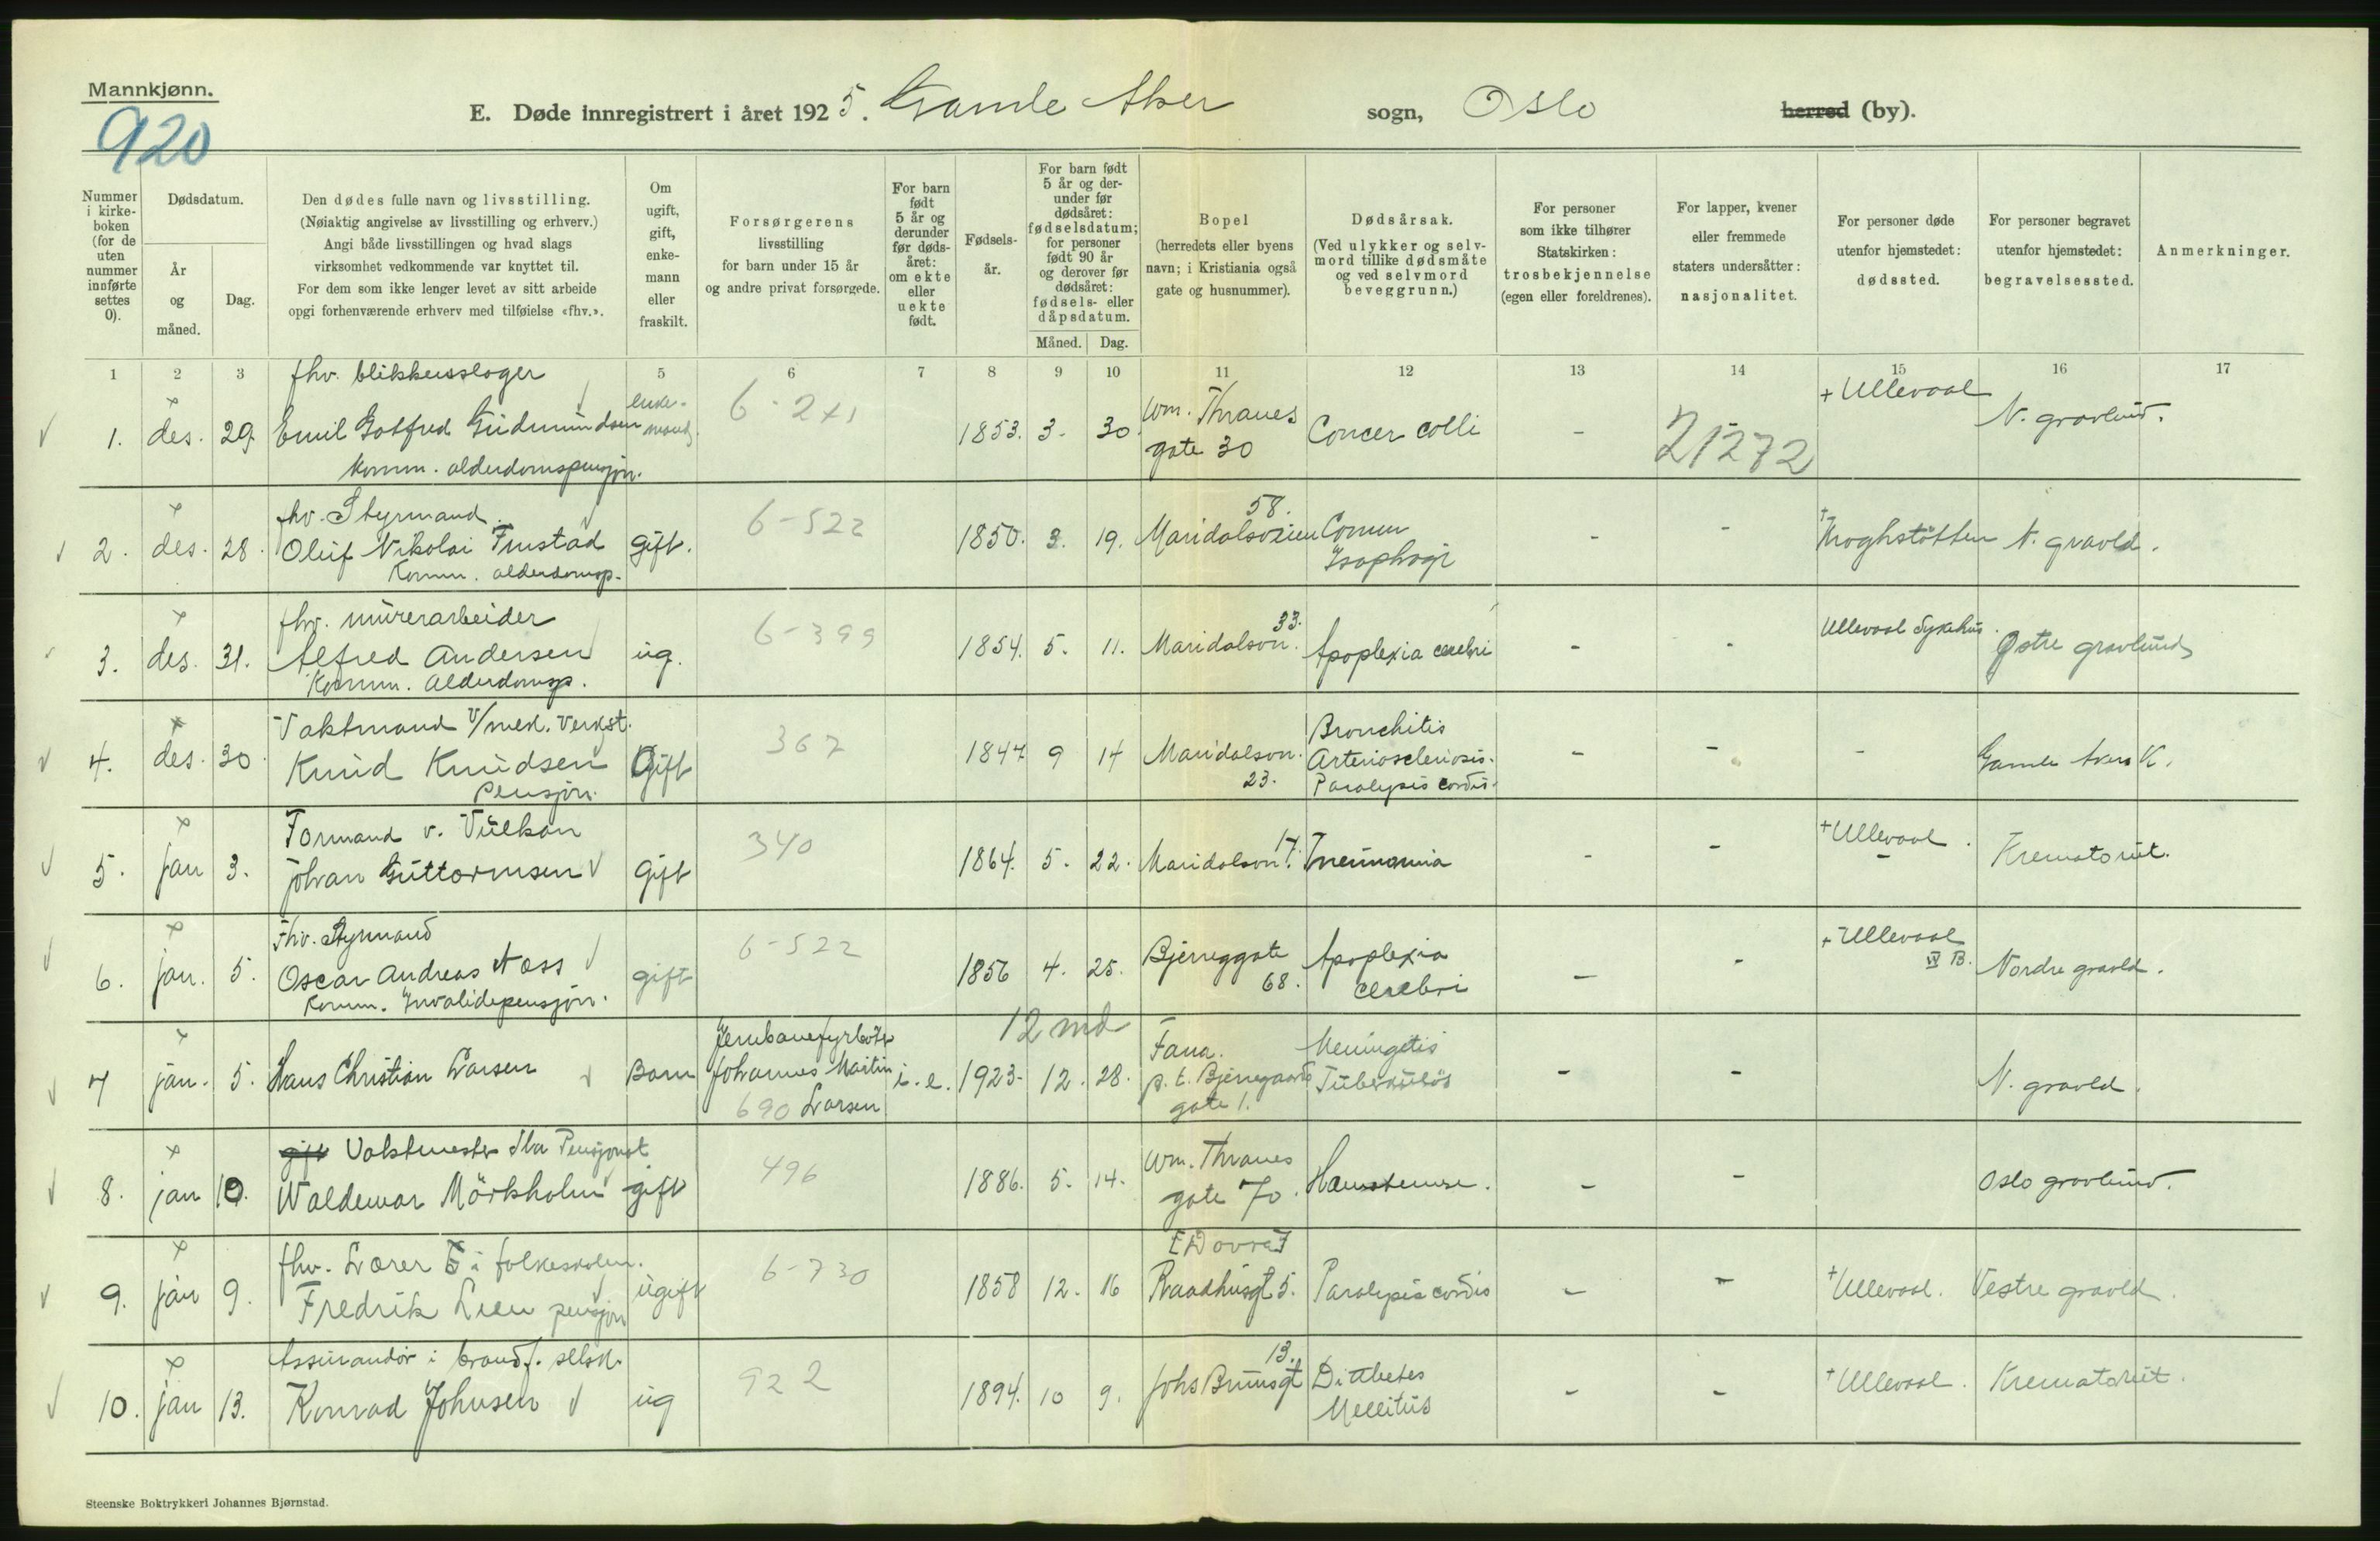 Mannkjønn.
920
E. Døde innregistrert i året 1925. Gamle Aker sogn, Oslo herred (by).
Nummer i kirkeboken (for de uten nummer innførte settes 0).
Dødsdatum.
År og måned.
Dag.
Den dødes fulle navn og livsstilling.
(Nøiaktig angivelse av livsstilling og erhverv.)
Angi både livsstillingen og hvad slags
virksomhet vedkommende var knyttet til.
For dem som ikke lenger levet av sitt arbeide
opgi forhenværende erhverv med tilføielse «fhv.».
Om ugift, gift, enkemann eller fraskilt.
Forsørgerens
livsstilling
for barn under 15 år
og andre privat forsørgede.
For barn født 5 år og derunder før dødsåret: om ekte eller uekte født.
Fødselsår.
For barn født 5 år og derunder før dødsåret: fødselsdatum; for personer født 90 år og derover før dødsåret: fødsels- eller dåpsdatum.
Måned. Dag.
Bopel
(herredets eller byens
navn; i Kristiania også
gate og husnummer).
Dødsårsak.
(Ved ulykker og selvmord tillike dødsmåte og ved selvmord beveggrunn.)
For personer
som ikke tilhører
Statskirken:
trosbekjennelse
(egen eller foreldrenes).
For lapper, kvener
eller fremmede
staters undersåtter:
nasjonalitet.
For personer døde
utenfor hjemstedet:
dødssted.
For personer begravet
utenfor hjemstedet:
begravelsessted.
Anmerkninger.
1 2 3 5 6 7 8 9 10 11 12 13 14 15 16 17
fhv. blikkenslager
1. des. 29. Emil Gotfred Gudmundsen enkemand. 1853. 3. 30. Wm. Thranes gate 30 Cancer colli - 21272 + Ullevaal N. gravlund.
Komm. alderdomspensjon.
fhv. Styrmand
2. des. 28. Oluf Nikolai Finstad gift. 6-522 1850. 3. 19. Maridalsveien 58. - - N. gravld.
Komm. alderdomsp.
fhv. murerarbeider
3. des. 31. Alfred Andersen ug. 6-399 1854. 5. 11. Maridalsv. 33. Apoplexia cerebri - - Ullevaal Sykehus. Østre gravlund
Komm. Alderdomsp.
Vaktmand v/mek. verkst.
4. des. 30. Knud Knudsen Gift 367 1847 9 14 Maridalsv. 23. Bronchitis Arteriosclerosis. Paralysis cordis. - - - Gamle Akers K.
Pensjon.
Formand v. Vulkan
5. jan 3. Johan Guttormsen Gift 340 1864. 5. 22. Maridalsvn. 17. Pneumonia - - + Ullevaal. Krematoriet.
Fhv. Styrmand
6. jan. 5. Oscar Andreas Næss gift 6-522 1856 4. 25. Bjerreggate 68. Apoplexia cerebri - - + Ullevaal VI B. Nordre gravld.
Komm. Invalidepensjon.
12 md
7 jan. 5. Hans Christian Larsen Barn Jernbanefyrbøter Johannes Martin Larsen 690 i. e. 1923. 12. 28. Fana. p. t. Bjerregaards gate 1. Meningitis Tuberkuløs - - N. gravld.
gift Vaktmester Pensjonist
8. jan 10. Waldemar Mörkholm gift 496 1886. 5. 14. Wm. Thranes gate 70. - - Oslo gravlund.
fhv. Lærer i folkeskolen.
9. jan 9. Fredrik Lien pensjon ugift 6-730 1858 12. 16 [Dovre] Raadhusgt 5. Paralysis cordis - - + Ullevaal. Vestre gravld.
Assurandør i brandf. selsk.
10. jan 13. Konrad Johnsen ug 922 1894. 10 9. Johs Brunsgt 13. Diabetes Mellitus - - + Ullevaal. Krematoriet.
Steenske Boktrykkeri Johannes Bjørnstad.